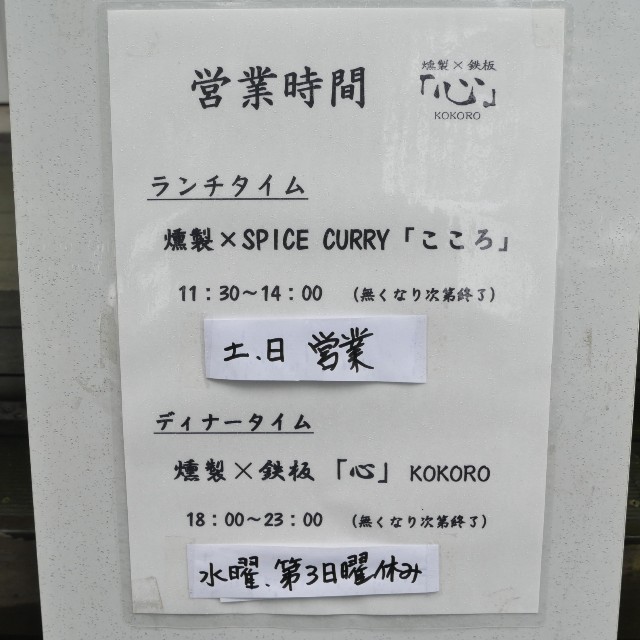 営業時間
燻製×鉄板
「心」
KOKORO
ランチタイム
燻製×SPICE CURRY「こころ」
11:30~14:00 (無くなり次第終了)
土、日 営業
ディナータイム
燻製×鉄板 「心」 KOKORO
18:00~23:00 (無くなり次第終了)
水曜、第3日曜休み